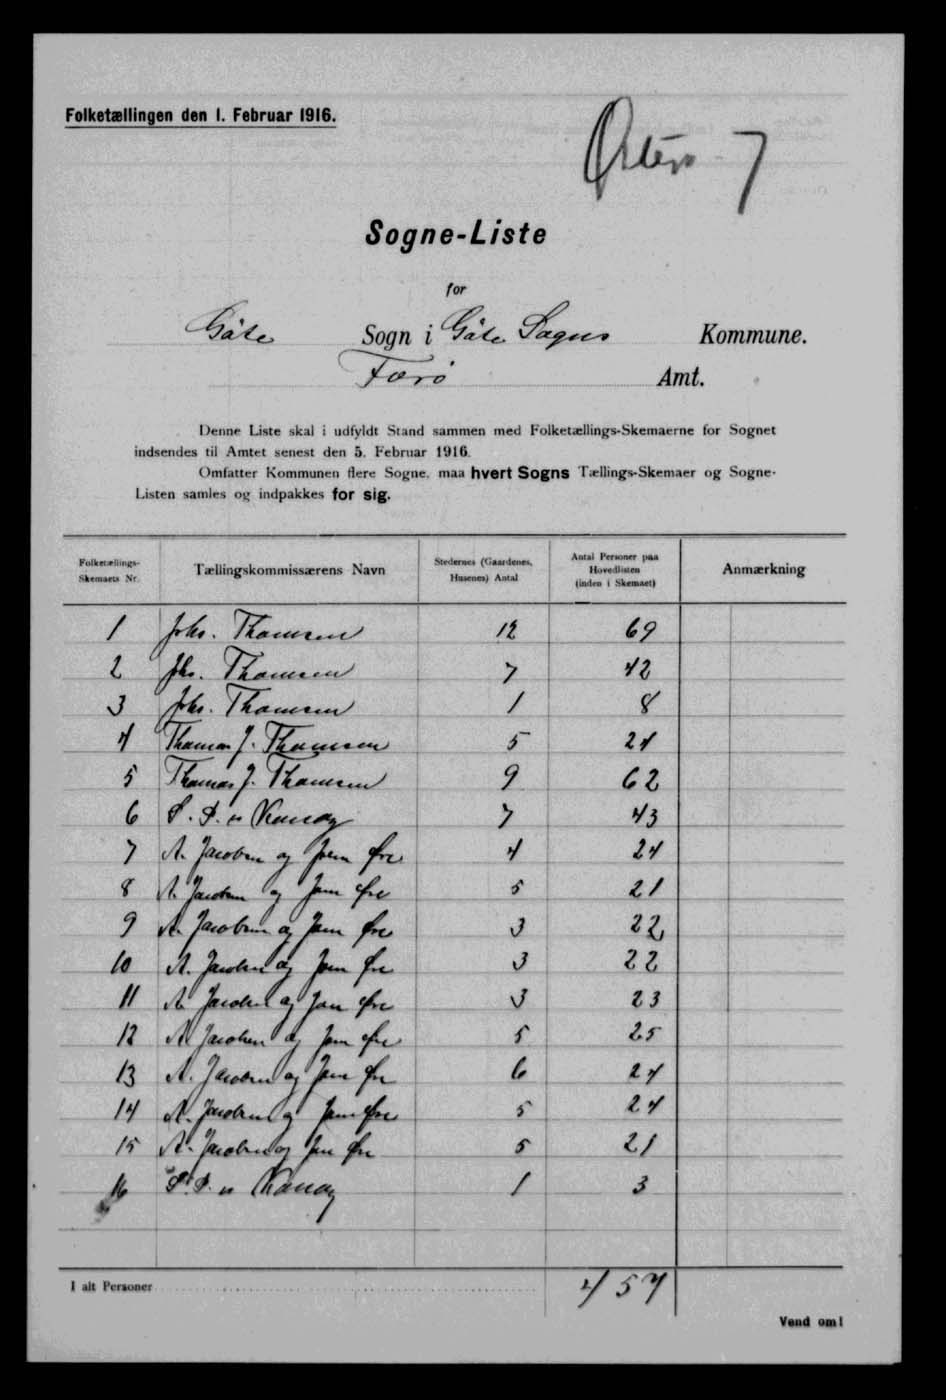 Folketællingen den 1. Februar 1916.
Østerø 7
Sogne-Liste
for
Gøte Sogn i Gøte Sogns Kommune.
Færø Amt.
Denne Liste skal i udfyldt Stand sammen med Folketællings-Skemaerne for Sognet
indsendes til Amtet senest den 5. Februar 1916.
Omfatter Kommunen flere Sogne, maa hvert Sogns Tællings-Skemaer og Sogne-
Listen samles og indpakkes for sig.
Folketællings-Skemaets Nr. Tællingskommissærens Navn Stedernes (Gaardenes, Husenes) Antal Antal Personer paa Hovedlisten (inden i Skemaet) Anmærkning
1 Johs. Thomsen 12 69
2 Johs. Thomsen 7 42
3 Johs. Thomsen 1 8
4 Thomas J. Thomsen 5 24
5 Thomas J. Thomsen 9 62
6 S. P. 7 43
7 A. Jacobsen og Joen Øre 4 24
8 A. Jacobsen og Joen Øre 5 21
9 A. Jacobsen og Joen Øre 3 22
10 A. Jacobsen og Joen Øre 3 22
11 A. Jacobsen og Joen Øre 3 23
12 A. Jacobsen og Joen Øre 5 25
13 A. Jacobsen og Joen Øre 6 24
14 A. Jacobsen og Joen Øre 5 24
15 A. Jacobsen og Joen Øre 5 21
16 S. P. 1 3
I alt Personer 457
Vend om!